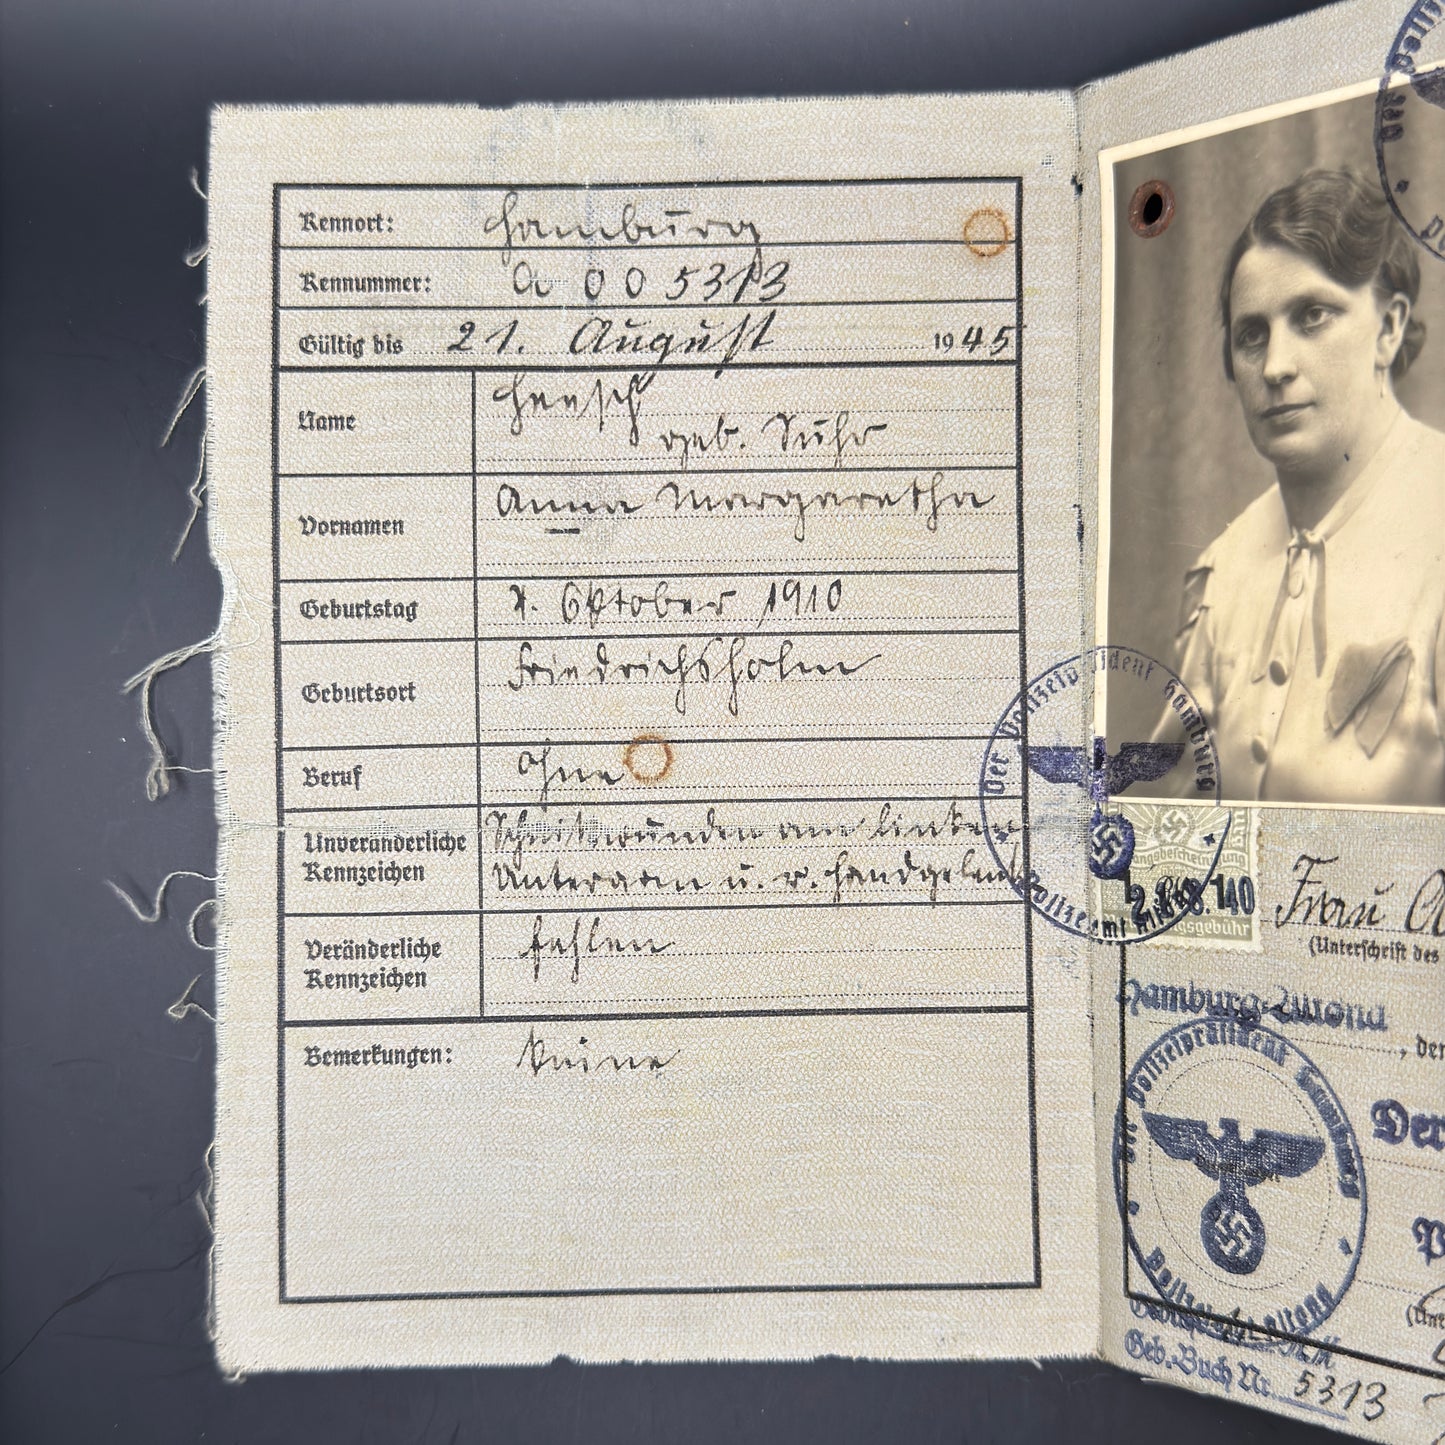 Kennort: Hamburg
Kennnummer: A 005313
Gültig bis 21. August 1945
Name
geb. Suhr
Vornamen Anna Margaretha
Geburtstag Oktober 1910
Geburtsort Friedrichsholm
Beruf ohne
Unveränderliche Kennzeichen Schnittwunden am linken
Unterarm u. r. Handgelenk
Veränderliche Kennzeichen fehlen
Bemerkungen: keine
Der Polizeipräsident Hamburg
Polizeiamt
2 8. 40
Frau A
(Unterschrift des
Hamburg-Altona
, den
Der Polizeipräsident Hamburg
Polizeiverwaltung
Der
P
(Unt
Geb.-Buch Nr. 5313